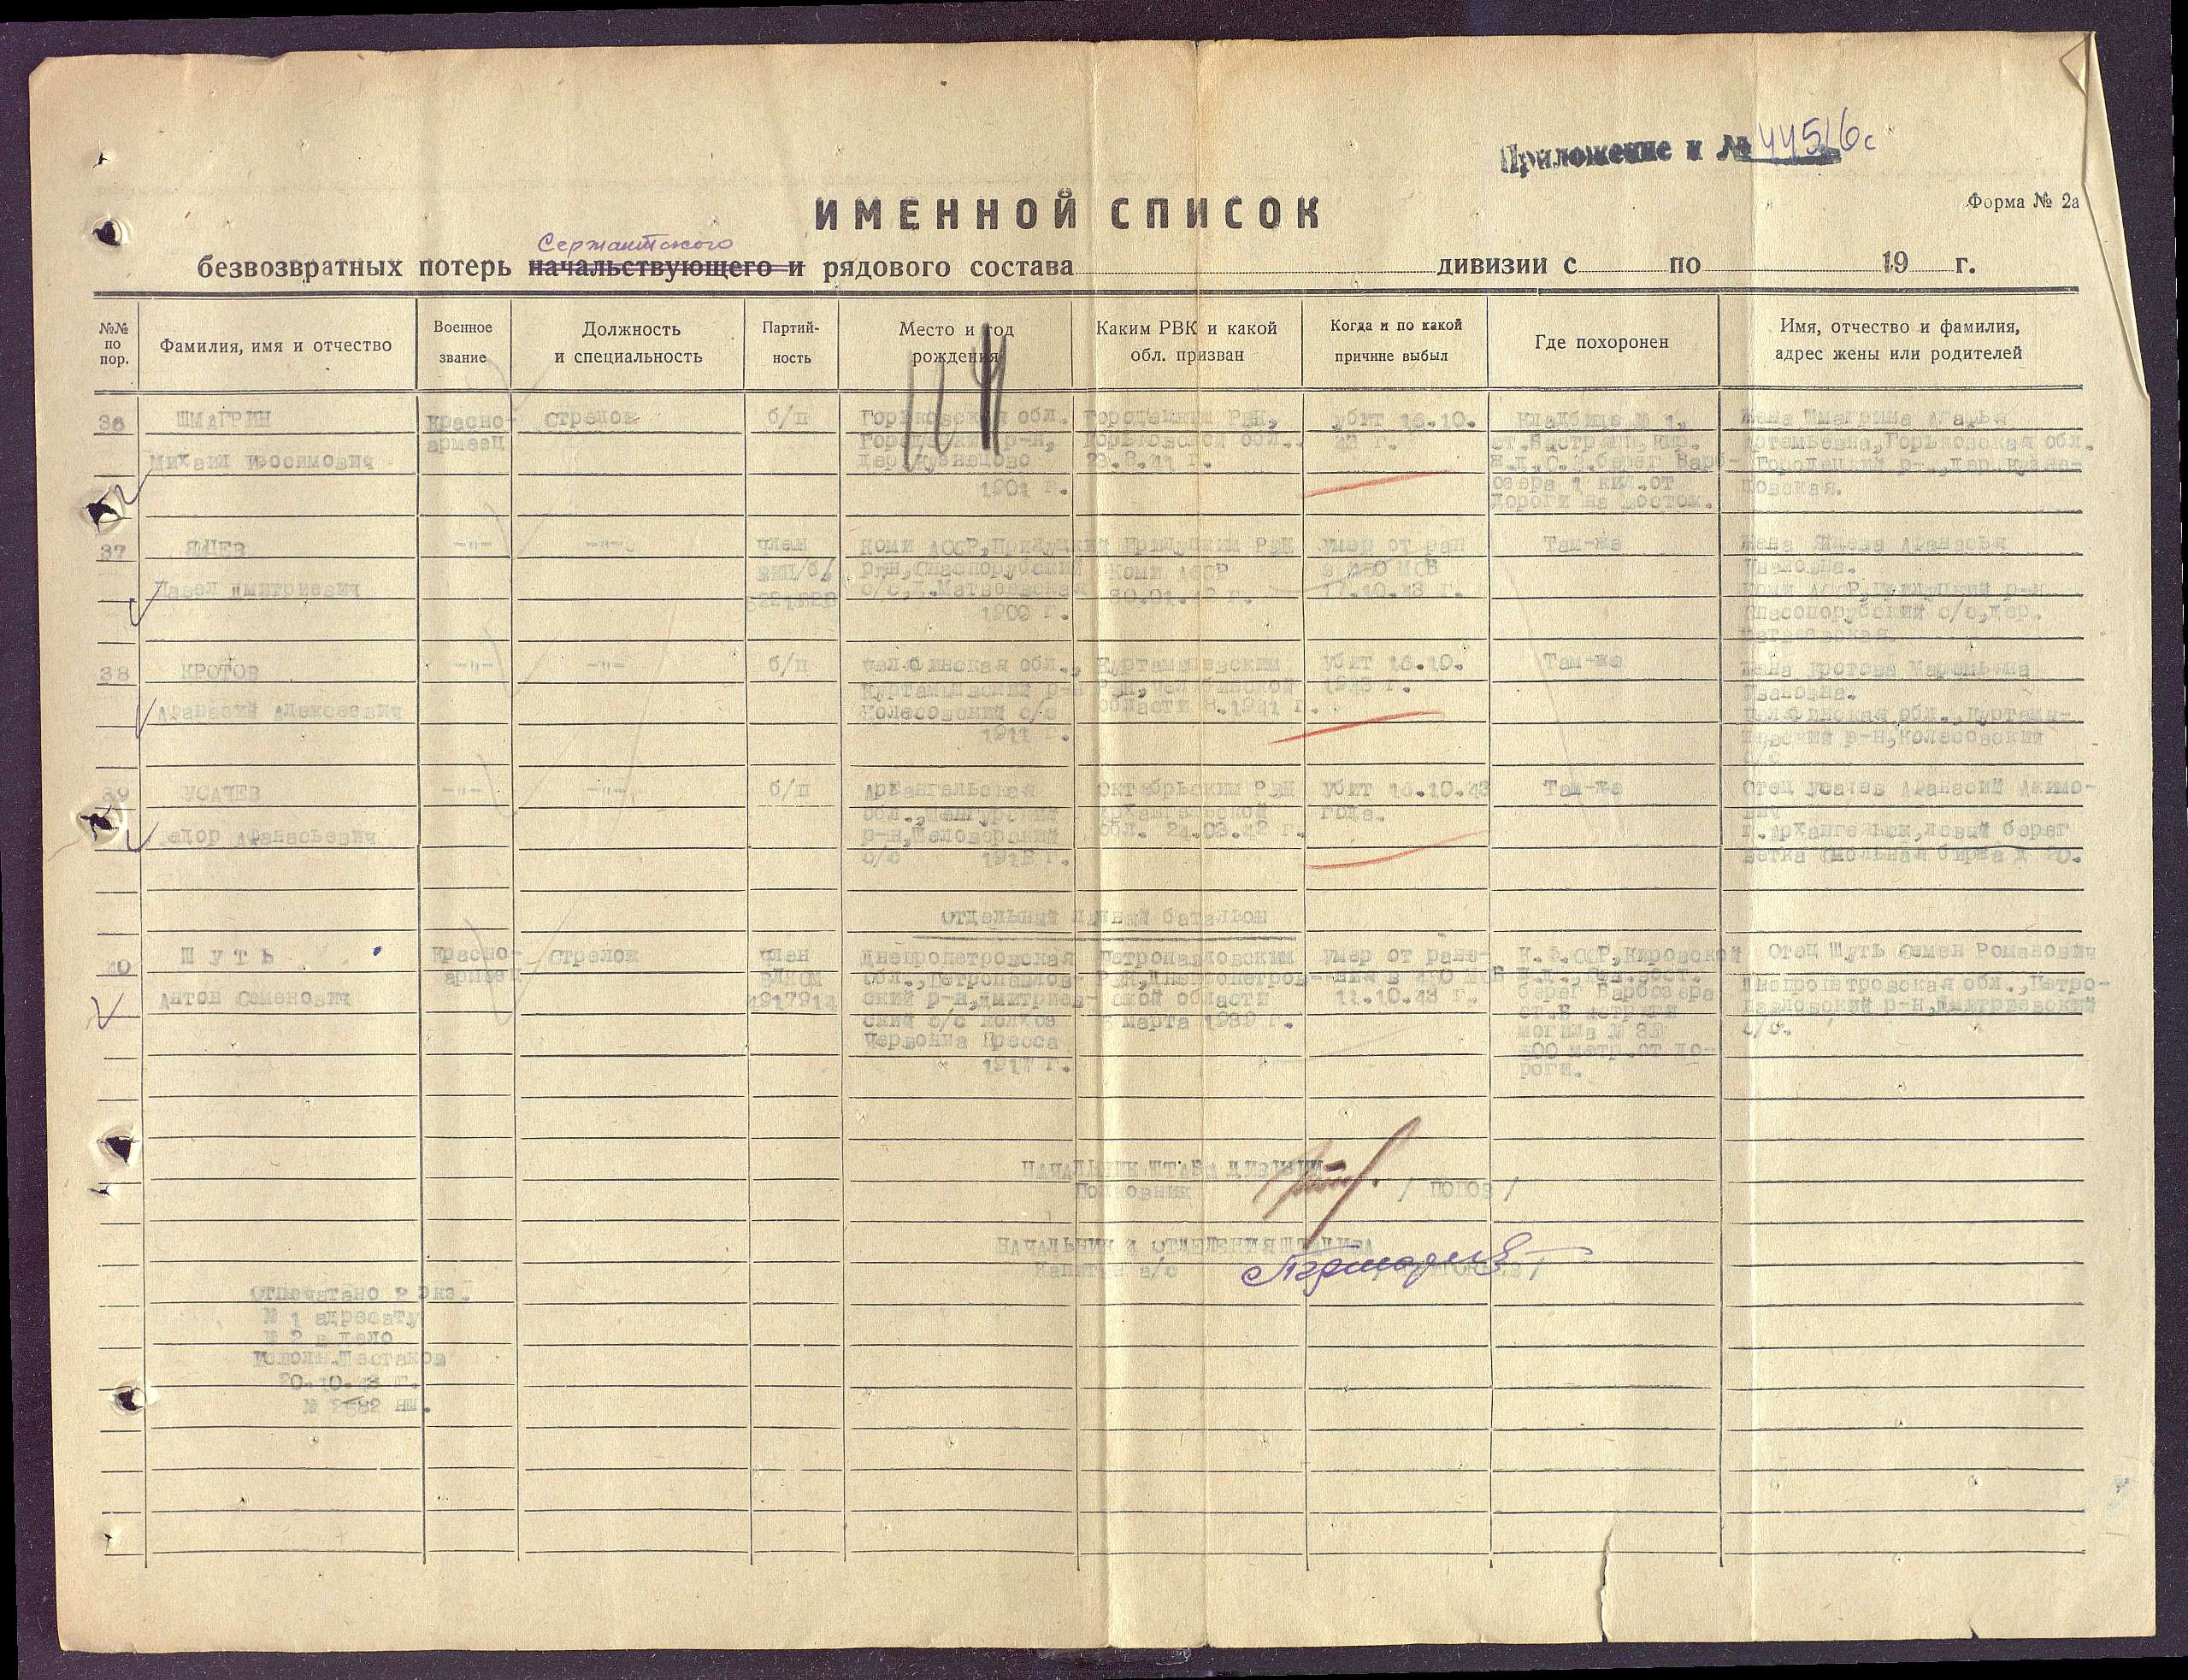 Приложение к № 44516с
Форма № 2а
ИМЕННОЙ СПИСОК
Сержантского
безвозвратных потерь начальствующего и рядового состава дивизии с по 19 г.
№№ по пор.
Фамилия, имя и отчество
Военное звание
Должность и специальность
Партий-ность
Место и год рождения
Каким РВК и какой обл. призван
Когда и по какой причине выбыл
Где похоронен
Имя, отчество и фамилия, адрес жены или родителей
36
ШМАГРИН
Михаил Изосимович
Красно-
армеец
стрелок
б/п
Горьковская обл.
Городецкий р-н,
дер. Кузнецово
1901 г.
Городецким РВК,
Горьковской обл.
23.8.41 г.
убит 16.10.
43 г.
Кладбище № 1,
ж.д., С.З. берег Варб-
озера 1 клм. от
дороги на восток.
Жена Шмагрина Агафья
Артемьевна, Горьковская обл.
Городецкий р-н, дер.
37
ЯЩЕВ
Павел Дмитриевич
-"-
-"-
член
ВКП/б/
Коми АССР, Прилузский
р-н, Спаспорубский
с/с, д. Матвеевская
1909 г.
Прилузким РВК
Коми АССР
30.01.42 г.
умер от ран
в МСБ
17.10.43 г.
Там-же
Жена Ящева Афанасья
Ивановна.
Коми АССР, Прилузкий р-н
Спаспорубский с/с, дер.
Матвеевская.
38
КРОТОВ
Афанасий Алексеевич
-"-
-"-
б/п
Челябинская обл.,
Куртамышевский р-н
Колесовский с/с
1911 г.
Куртамышевским
РВК, Челябинской
области 8.1941 г.
убит 16.10.
1943 г.
Там-же
Жена Кротова Маремьяна
Ивановна.
Челябинская обл., Куртамы-
шевский р-н, Колесовский
с/с
39
УСАЧЕВ
Федор Афанасьевич
-"-
-"-
б/п
Архангельская
обл., Шенкурский
р-н,
с/с
Октябрьским РВК
Архангельской
обл. 24.03.42 г.
убит 16.10.43
года.
Там-же
Отец Усачев Афанасий Акимо-
вич
г. Архангельск, левый берег
ветка Смольная биржа д 20.
Отдельный лыжный батальон
40
Ш У Т Ь
Антон Семенович
Красно-
армеец
Стрелок
член
ВЛКСМ
Днепропетровская
обл., Петропавлов-
ский р-н, Дмитриев-
ский с/с колхоз
Червонна Пресса
1917 г.
Петропавловским
РВК, Днепропетров-
ской области
марта 1939 г.
Умер от ране-
ния в МСБ
11.10.43 г.
К.Ф.ССР, Кировской
ж.д.,
берег Варбозера
могила №
500 метр. от до-
роги.
Отец Шуть Семен Романович
Днепропетровская обл., Петро-
павловский р-н, Дмитриевский
с/с.
НАЧАЛЬНИК ШТАБА ДИВИЗИИ
Полковник / ПОПОВ /
НАЧАЛЬНИК ОТДЕЛЕНИЯ ШТАДИВА
Капитан а/с
Отпечатано 2 экз.
№ 1 адресату
№ 2 в дело
Исполн. Шестаков
20.10.43 г.
№ 2582 нш.